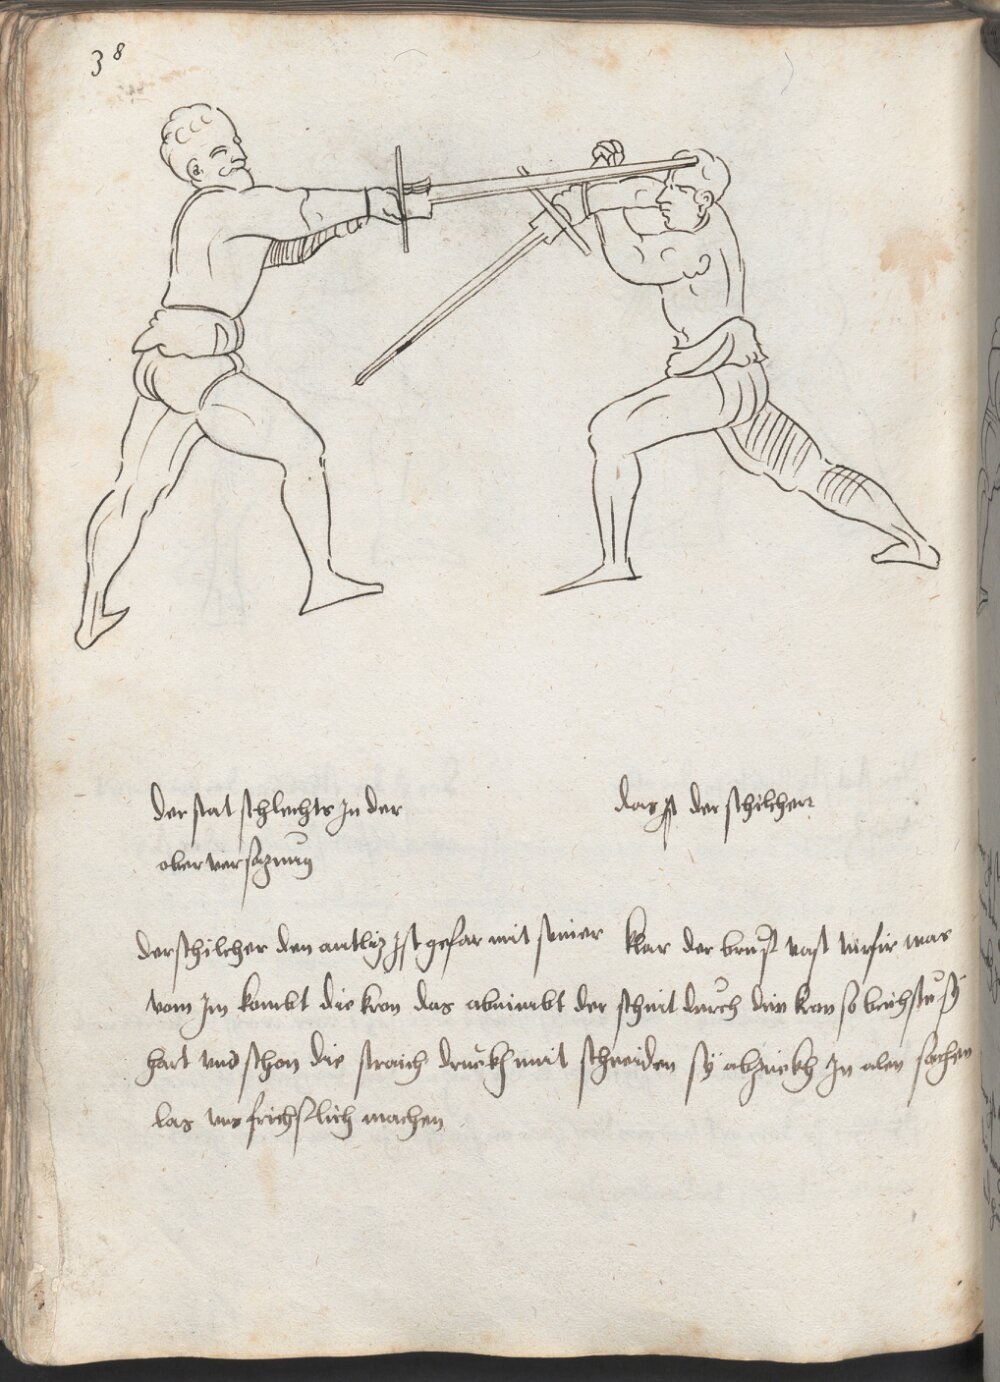 38
der stat schlechts In der
ober versazung
das ist der schilher
der schilcher den antliz Ist gefar mit seiner klar der brust vast türfür war
vom Im kombt die kron das abnimbt der schnit durch die kron so brichstu sÿ
hart und schon die straich druckh mit schneiden sÿ abzuckh In alen sachen
las uns frischlich machen